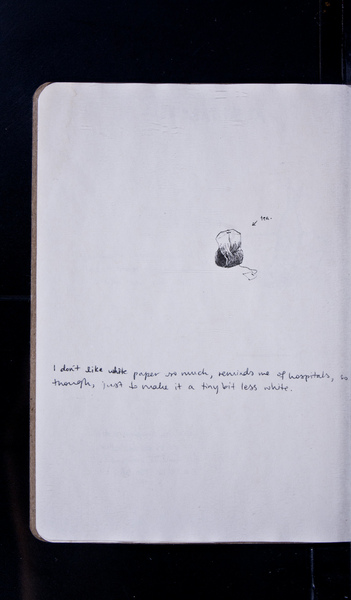 tea.
I don't like white paper so much, reminds me of hospitals, so
though, just to make it a tiny bit less white.